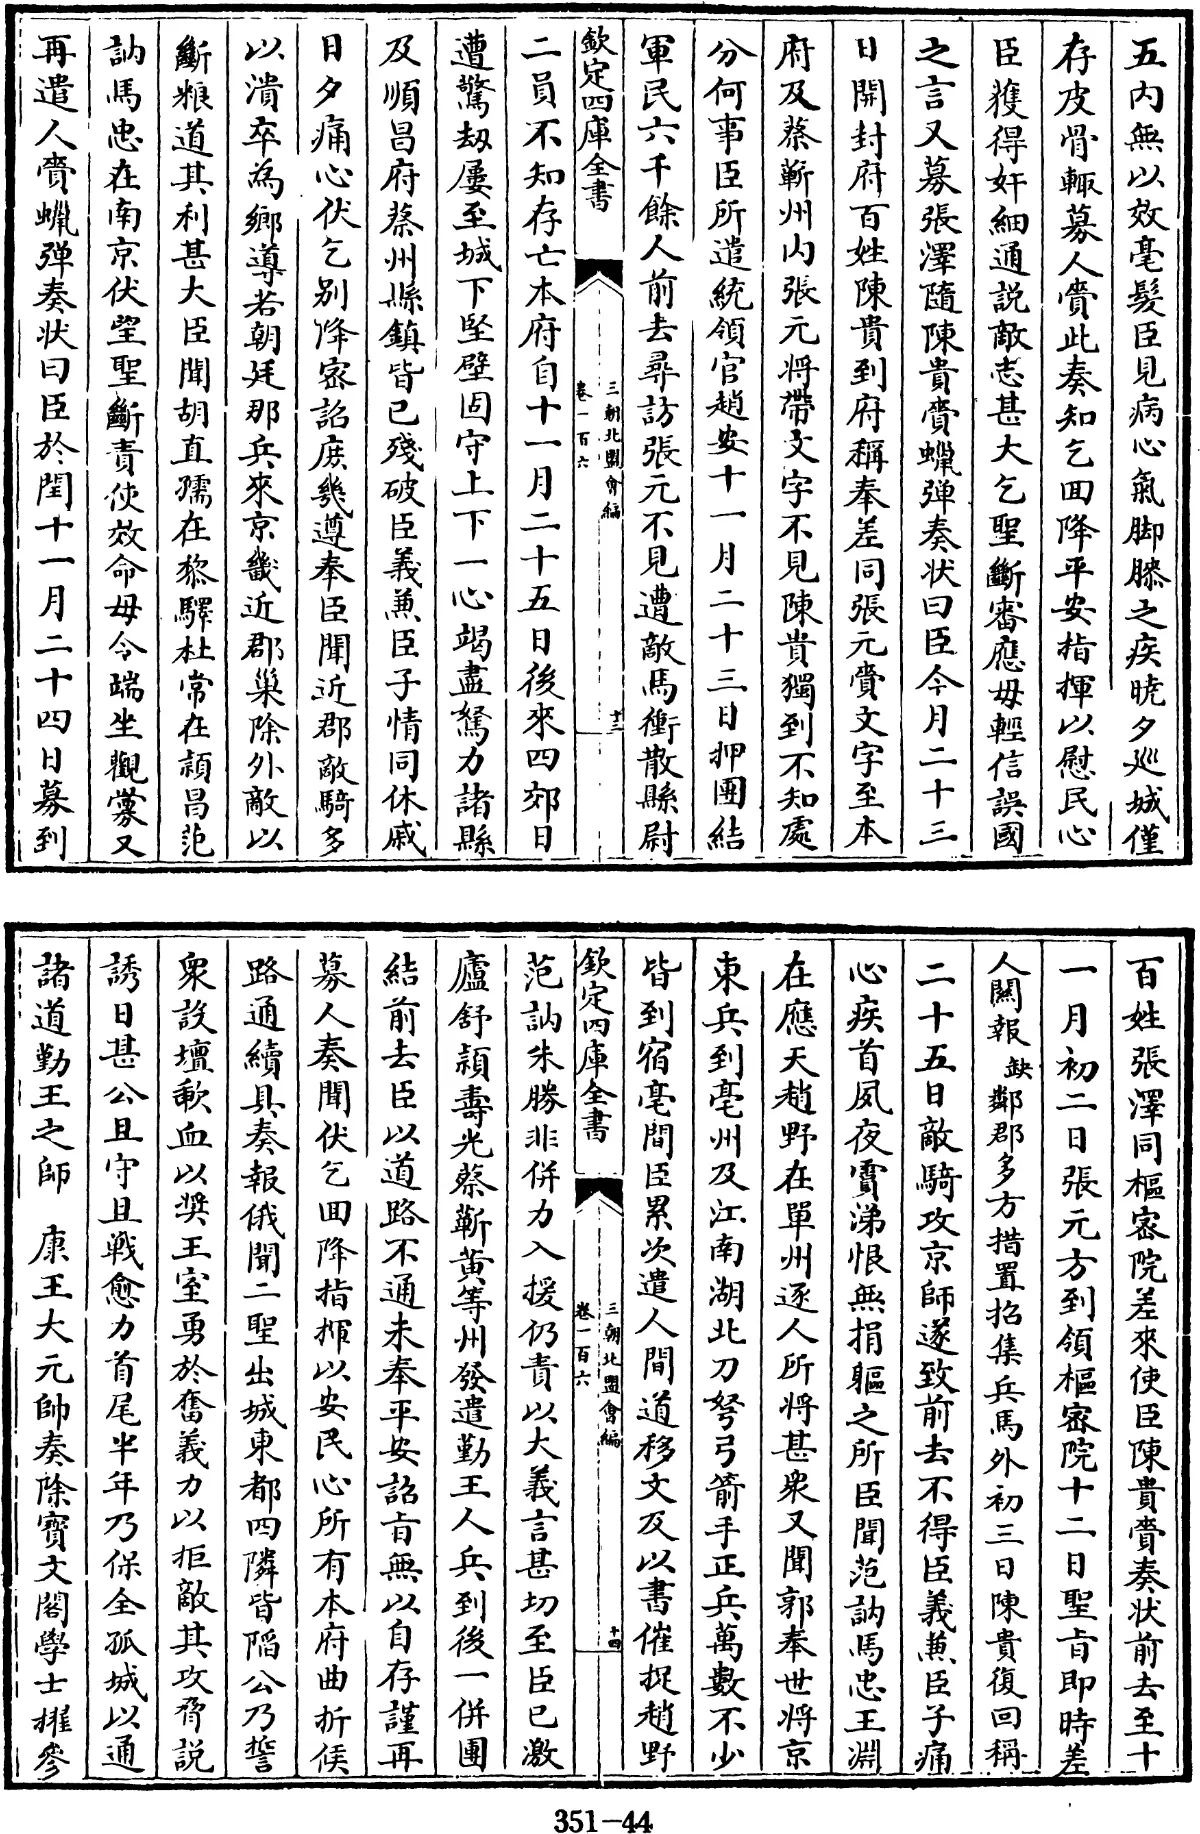 五内無以效毫髮臣見病心氣脚膝之疾曉夕巡城僅
存皮骨輙募人賫此奏知乞回降平安指揮以慰民心
臣獲得奸細通説敵志甚大乞聖斷審應毋輕信誤國
之言又募張澤隨陳貴賫蠟弹奏状曰臣今月二十三
日開封府百姓陳貴到府稱奉差同張元賫文字至本
府及蔡蘄州内張元将帶文字不見陳貴獨到不知處
分何事臣所遣統領官趙安十一月二十三日押團結
軍民六千餘人前去尋訪張元不見遭敵馬衝散縣尉
欽定四庫全書
三朝北盟會編
卷一百六
十三
二員不知存亡本府自十一月二十五日後來四郊日
遭驚刼屢至城下堅壁固守上下一心竭盡駑力諸縣
及順昌府蔡州縣鎮皆已殘破臣義兼臣子情同休戚
日夕痛心伏乞别降宻詔庶幾遵奉臣聞近郡敵騎多
以潰卒為鄉導若朝廷那兵來京畿近郡巢除外敵以
斷粮道其利甚大臣聞胡直孺在黎驛杜常在潁昌范
訥馬忠在南京伏望聖斷責使效命毋令端坐觀釁又
再遣人賫蠟弹奏状曰臣於閏十一月二十四日募到
百姓張澤同樞宻院差來使臣陳貴賫奏状前去至十
一月初二日張元方到領樞宻院十二日聖旨即時差
人闗報缺鄰郡多方措置招集兵馬外初三日陳貴復回稱
二十五日敵騎攻京師遂致前去不得臣義兼臣子痛
心疾首夙夜實涕恨無捐軀之所臣聞范訥馬忠王淵
在應天趙野在單州逐人所将甚衆又聞郭奉世将京
東兵到亳州及江南湖北刀弩弓箭手正兵萬數不少
皆到宿亳間臣累次遣人間道移文及以書催捉趙野
欽定四庫全書
三朝北盟會編
卷一百六
十四
范訥朱勝非併力入援仍責以大義言甚切至臣已激
廬舒潁壽光蔡蘄黄等州發遣勤王人兵到後一併團
結前去臣以道路不通未奉平安詔旨無以自存謹再
募人奏聞伏乞回降指揮以安民心所有本府曲折候
路通續具奏報俄聞二聖出城東都四隣皆陷公乃誓
衆設壇歃血以奨王室勇於奮義力以拒敵其攻脅説
誘日甚公且守且戰愈力首尾半年乃保全孤城以通
諸道勤王之師　康王大元帥奏除寳文閣學士擢參
351-44